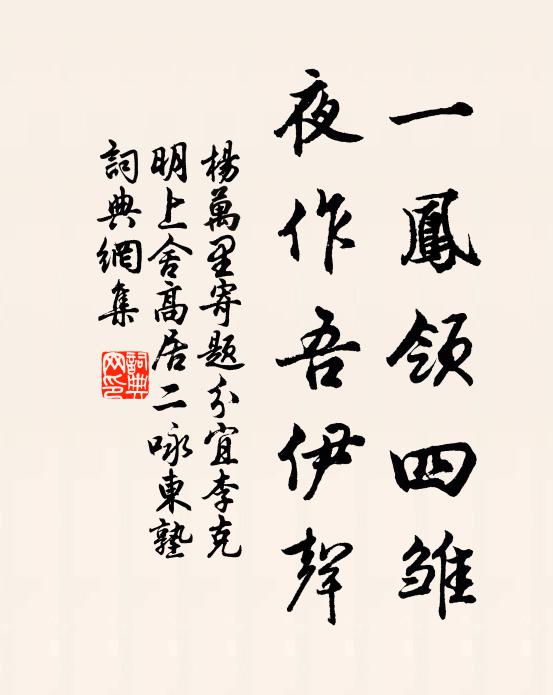 一鳳領四雛
夜作吾伊聲
楊萬里寄題分宜李克
明上舍高居二咏東塾
詞典網集
詞典
网印